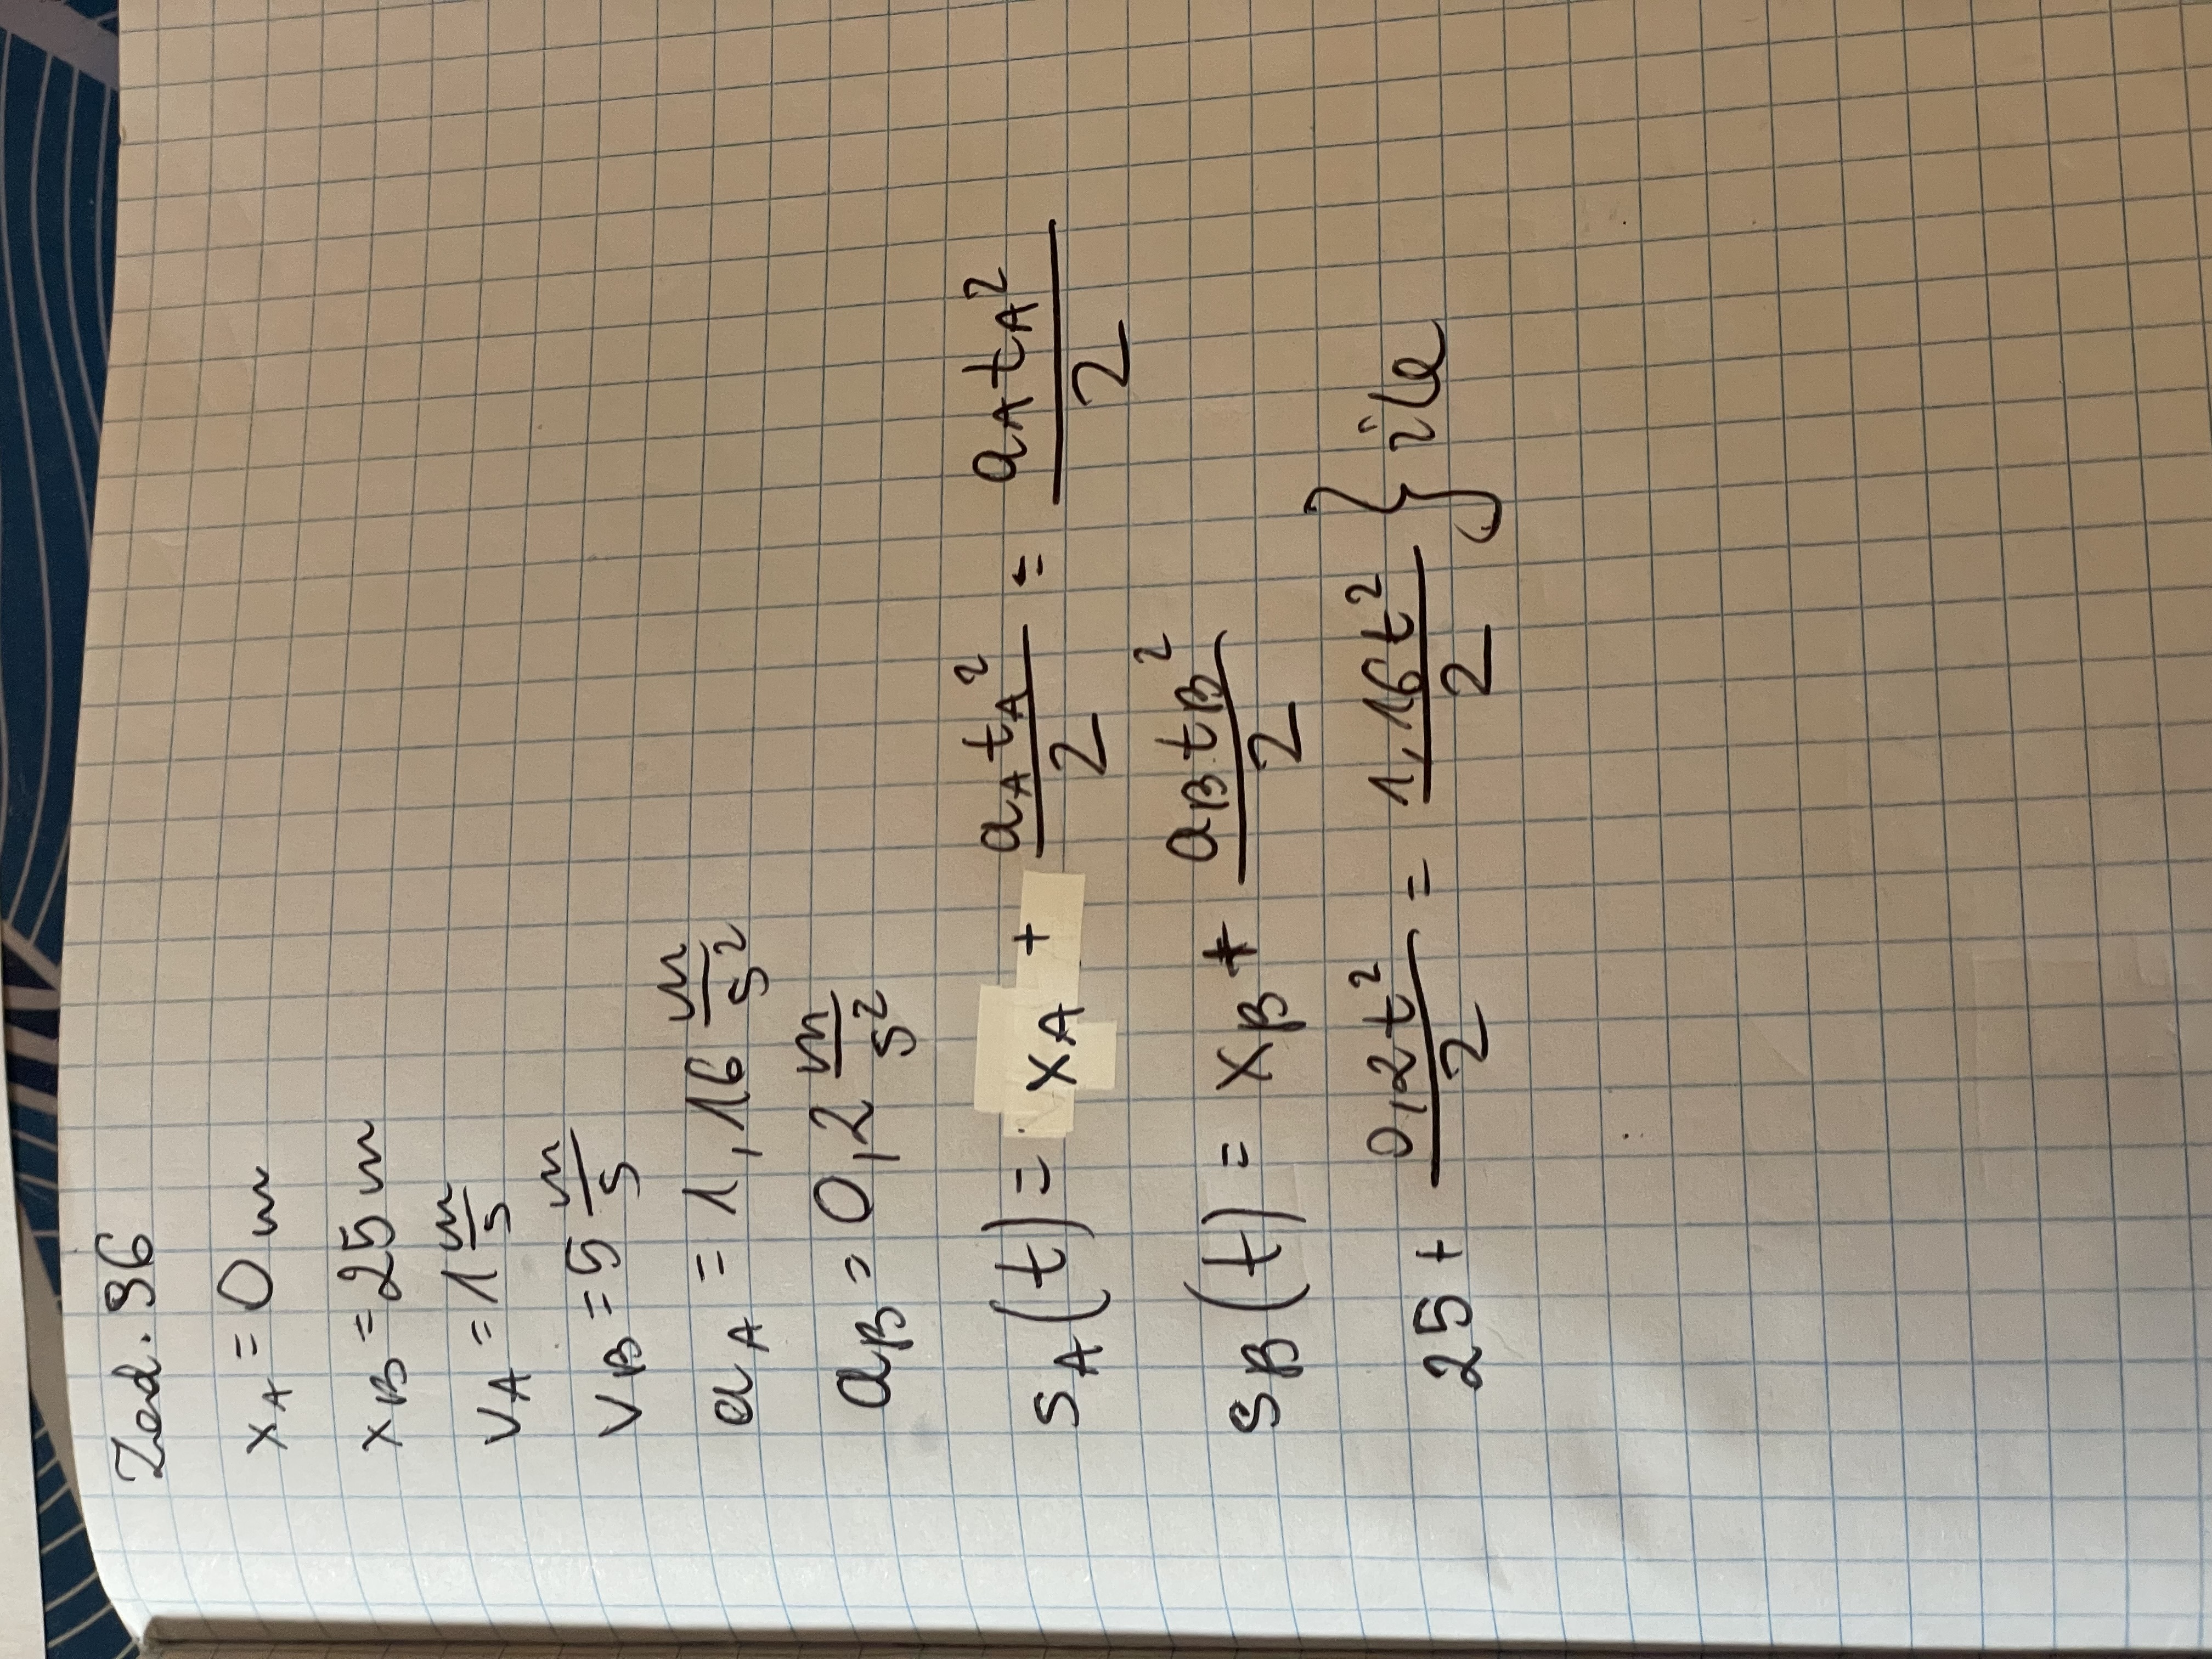 Zad. 96
x_A = 0 m
x_B = 25 m
v_A = 1 m/s
v_B = 5 m/s
a_A = 1,16 m/s²
a_B = 0,2 m/s²
s_A(t) = x_A + a_A t_A²/2 = a_A t_A²/2
s_B(t) = x_B + a_B t_B²/2
25 + 0,2t²/2 = 1,16t²/2 } źle